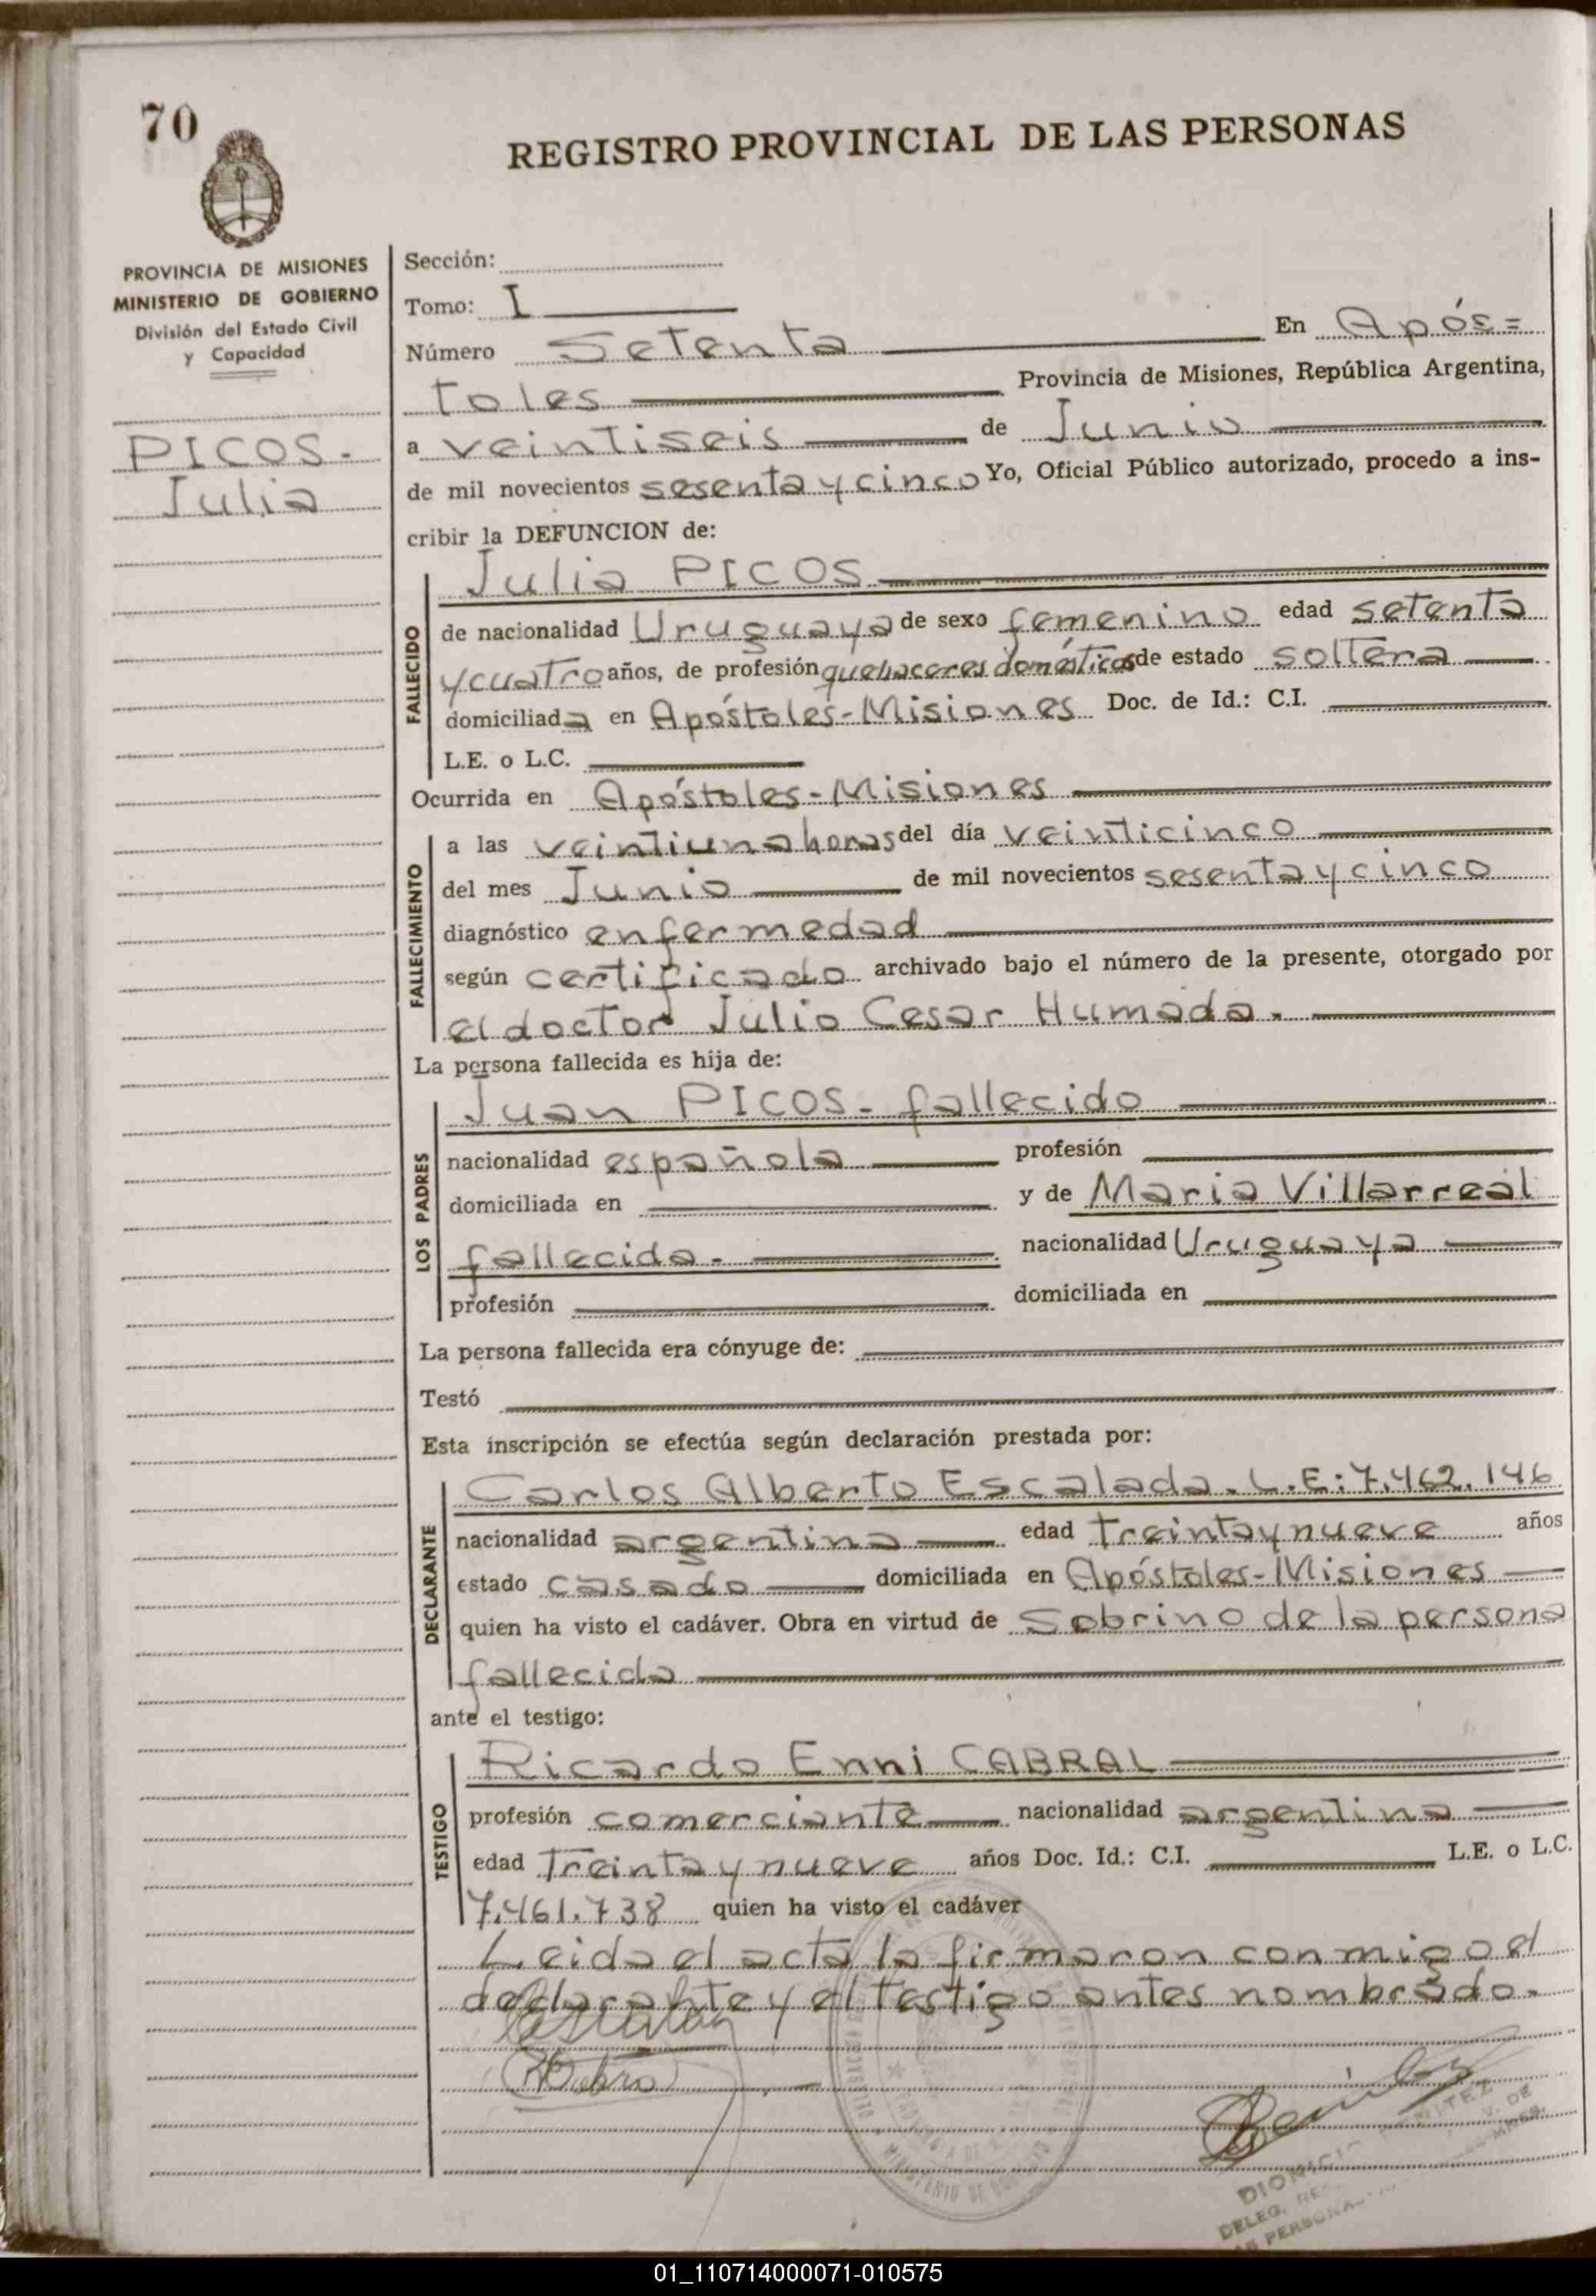 70
REGISTRO PROVINCIAL DE LAS PERSONAS
PROVINCIA DE MISIONES
MINISTERIO DE GOBIERNO
División del Estado Civil
y Capacidad
PICOS.
Julia
Sección:
Tomo: I
Número Setenta En Após=
toles Provincia de Misiones, República Argentina,
a veintiseis de Junio
de mil novecientos sesenta y cinco Yo, Oficial Público autorizado, procedo a ins-
cribir la DEFUNCION de:
FALLECIDO
Julia PICOS
de nacionalidad Uruguaya de sexo femenino edad setenta
y cuatro años, de profesión quehaceres domésticos de estado soltera
domiciliada en Apóstoles-Misiones Doc. de Id.: C.I.
L.E. o L.C.
Ocurrida en Apóstoles-Misiones
FALLECIMIENTO
a las veintiuna horas del día veinticinco
del mes Junio de mil novecientos sesenta y cinco
diagnóstico enfermedad
según certificado archivado bajo el número de la presente, otorgado por
el doctor Julio Cesar Humada.
La persona fallecida es hija de:
LOS PADRES
Juan PICOS - fallecido
nacionalidad española profesión
domiciliada en y de Maria Villarreal
fallecida. nacionalidad Uruguaya
profesión domiciliada en
La persona fallecida era cónyuge de:
Testó
Esta inscripción se efectúa según declaración prestada por:
DECLARANTE
Carlos Alberto Escalada. L.E: 7.462.146
nacionalidad argentina edad treinta y nueve años
estado casado domiciliada en Apóstoles-Misiones
quien ha visto el cadáver. Obra en virtud de Sobrino de la persona
fallecida
ante el testigo:
TESTIGO
Ricardo Enni CABRAL
profesión comerciante nacionalidad argentina
edad Treinta y nueve años Doc. Id.: C.I. L.E. o L.C.
7.461.738 quien ha visto el cadáver
Leida el acta la firmaron conmigo el
declarante y el testigo antes nombrado.
MINISTERIO DE
DELEG.
01_110714000071-010575